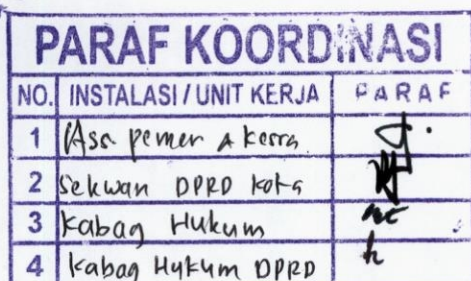 PARAF KOORDINASI
NO. INSTALASI / UNIT KERJA PARAF
1 Ass pemer & kesra
2 Sekwan DPRD Kota
3 Kabag Hukum
4 Kabag Hukum DPRD